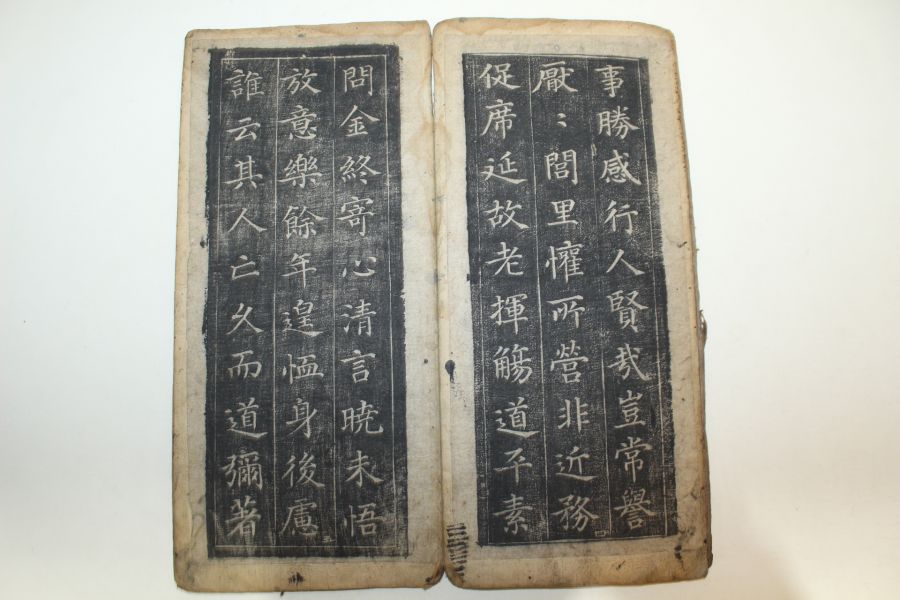 事勝感行人賢哉豈常譽
厭〻閭里懽所營非近務
四
促席延故老揮觴道平素
問金終寄心清言曉未悟
放意樂餘年遑恤身後慮
五
誰云其人亡久而道彌著